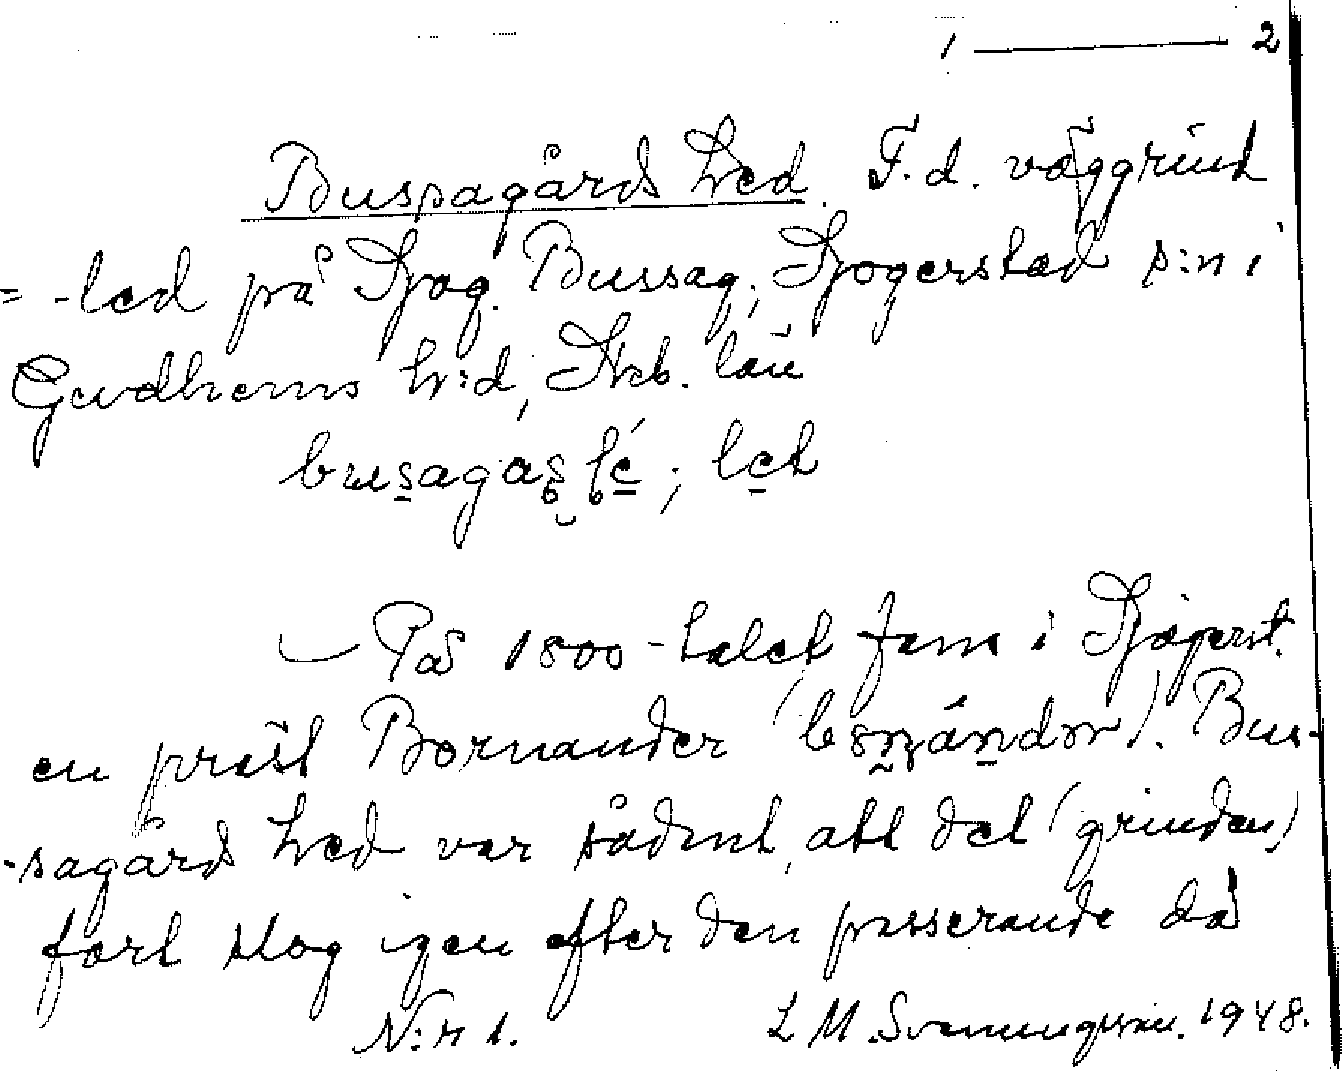 1 ——— 2
Bussagårds Led. F.d. väggrind
= -led på Sjog. Bussag., Sjogerstad s:n i
Gudhems h:d, Skb. län
På 1800-talet fans i Sjögerst.
en präst Bornander ( ). Bus-
-sagårds Led var sådent, att det (grinden)
fort slog igen efter den passerande då
N:r 1. L M. Svenungsson. 1948.